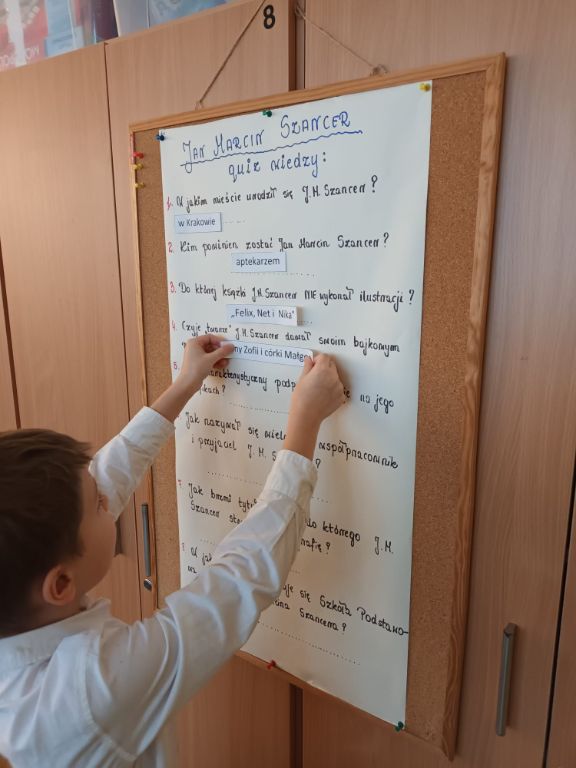 8
JAN MARCIN SZANCER
quiz wiedzy:
1. W jakim mieście urodził się J.M. Szancer?
w Krakowie
2. Kim powinien zostać Jan Marcin Szancer?
aptekarzem
3. Do której książki J.M. Szancer NIE wykonał ilustracji?
„Felix, Net i Nika"
4. Czyje „twarze" J.M. Szancer dawał swoim bajkowym
ny Zofii i córki Małgo
5. na jego
Jak nazywał się współpracownik
i przyjaciel J. M. ?
7. Jak brzmi do którego J.M.
Szancer ?
8. W
się Szkoła Podstawo-
Szancera?